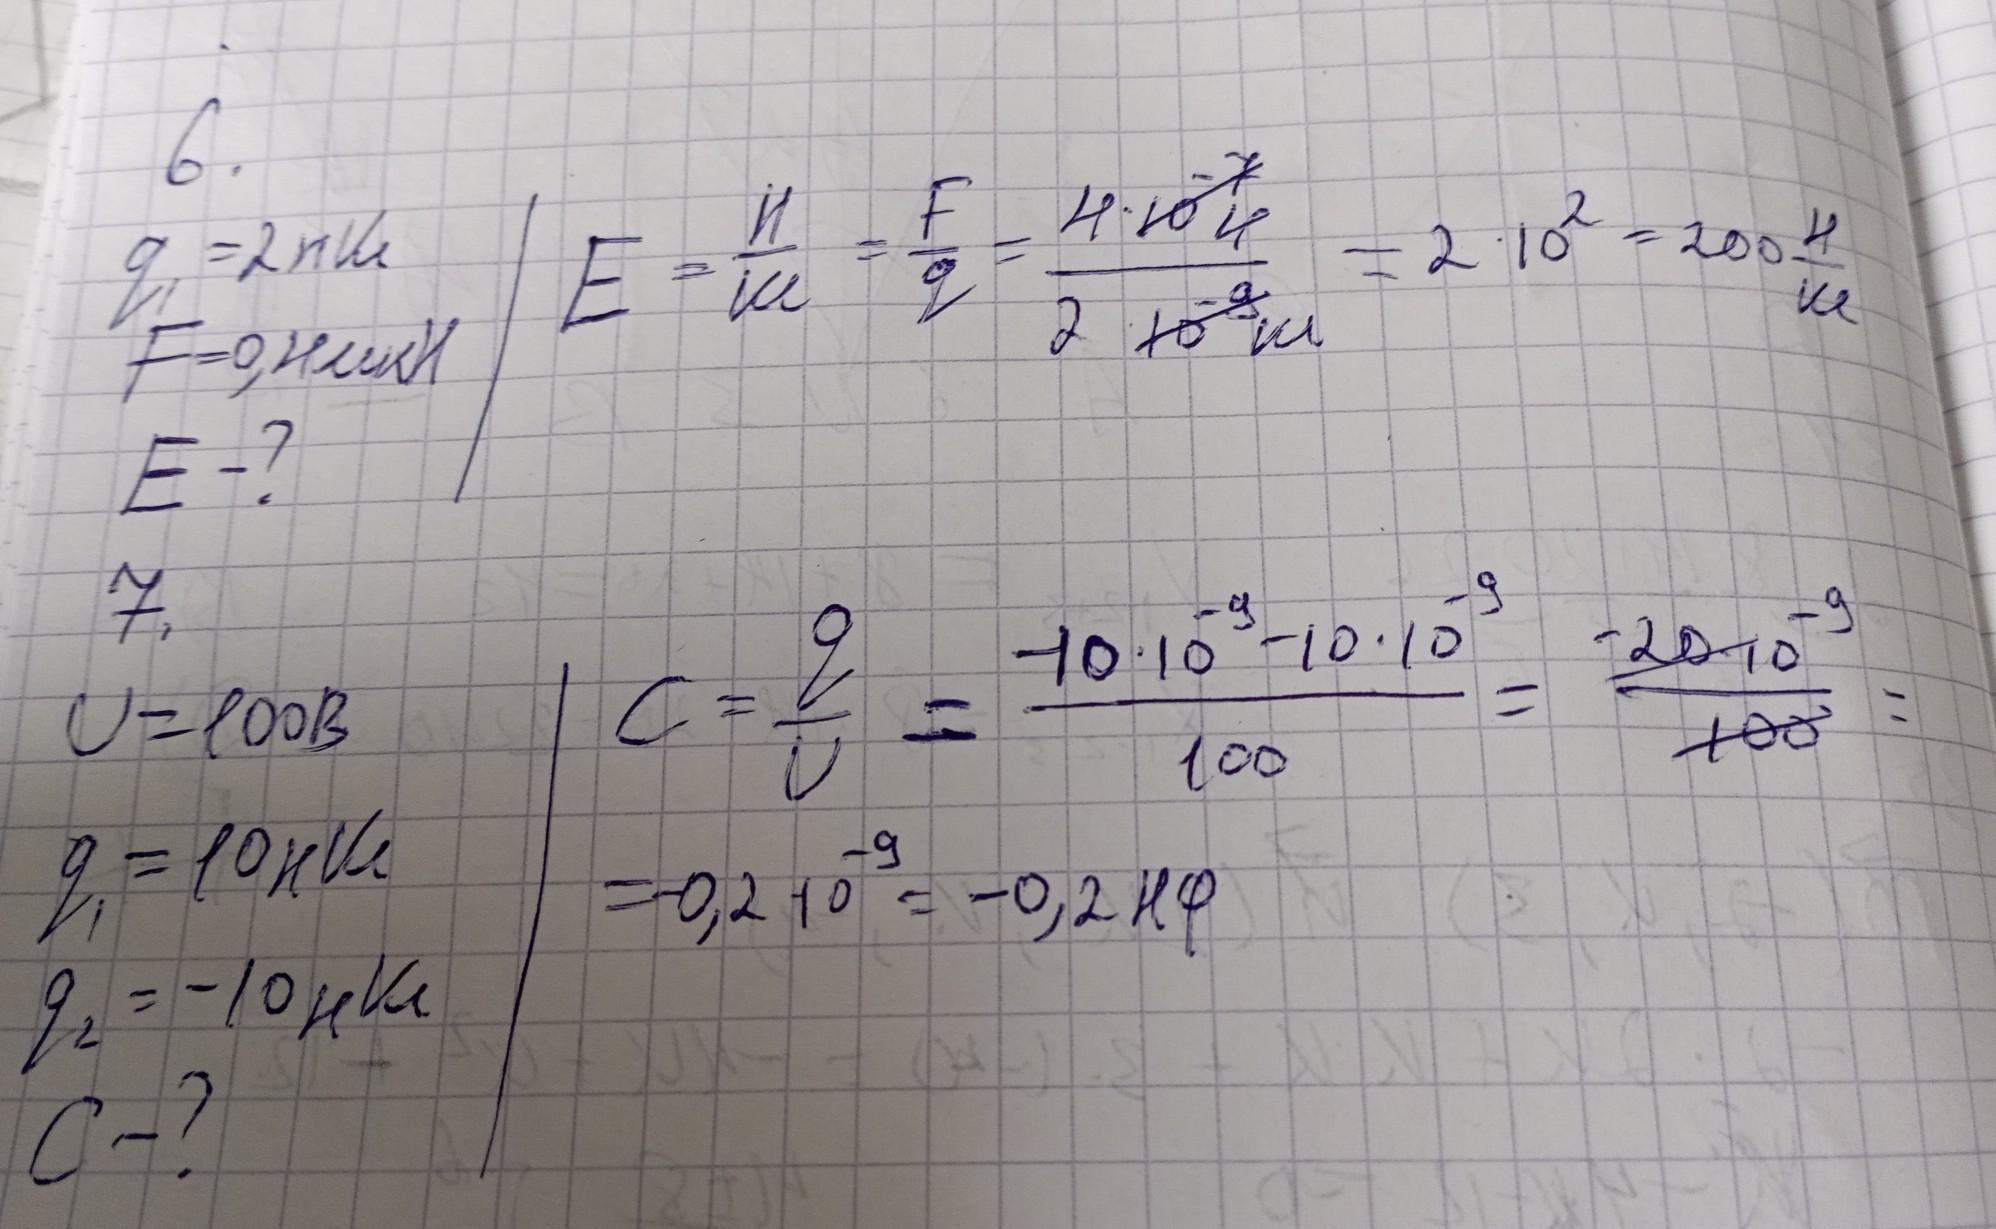 6.
q₁ = 2нКл
F = 0,4мкН
E - ?
E = Н/Кл = F/q = 4·10⁻⁷Н / 2·10⁻⁹Кл = 2·10² = 200 Н/Кл
7.
U = 100В
q₁ = 10нКл
q₂ = -10нКл
C - ?
C = q/U = -10·10⁻⁹-10·10⁻⁹ / 100 = -20·10⁻⁹ / 100 =
= -0,2·10⁻⁹ = -0,2нФ